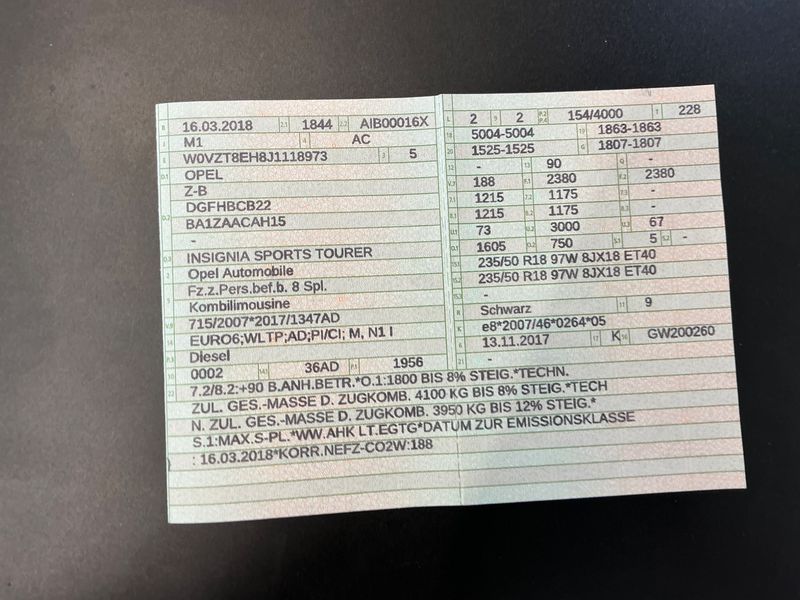 16.03.2018 2.1 1844 2.2 AIB00016X
M1 4 AC
W0VZT8EH8J1118973 3 5
OPEL
Z-B
DGFHBCB22
BA1ZAACAH15
-
INSIGNIA SPORTS TOURER
Opel Automobile
Fz.z.Pers.bef.b. 8 Spl.
Kombilimousine
715/2007*2017/1347AD
EURO6;WLTP;AD;PI/CI; M, N1 I
Diesel
0002 36AD P.1 1956
7.2/8.2:+90 B.ANH.BETR.*O.1:1800 BIS 8% STEIG.*TECHN.
ZUL. GES.-MASSE D. ZUGKOMB. 4100 KG BIS 8% STEIG.*TECH
N. ZUL. GES.-MASSE D. ZUGKOMB. 3950 KG BIS 12% STEIG.*
S.1:MAX.S-PL.*WW.AHK LT.EGTG*DATUM ZUR EMISSIONSKLASSE
: 16.03.2018*KORR.NEFZ-CO2W:188
L 2 9 2 P.2 P.4 154/4000 T 228
18 5004-5004 19 1863-1863
20 1525-1525 G 1807-1807
12 - 13 90 Q -
V.7 188 F.1 2380 F.2 2380
7.1 1215 7.2 1175 7.3 -
8.1 1215 8.2 1175 8.3 -
U.1 73 U.2 3000 U.3 67
O.1 1605 O.2 750 S.1 5 S.2 -
15.1 235/50 R18 97W 8JX18 ET40
15.2 235/50 R18 97W 8JX18 ET40
15.3 -
R Schwarz 11 9
K e8*2007/46*0264*05
6 13.11.2017 17 K 16 GW200260
21 -